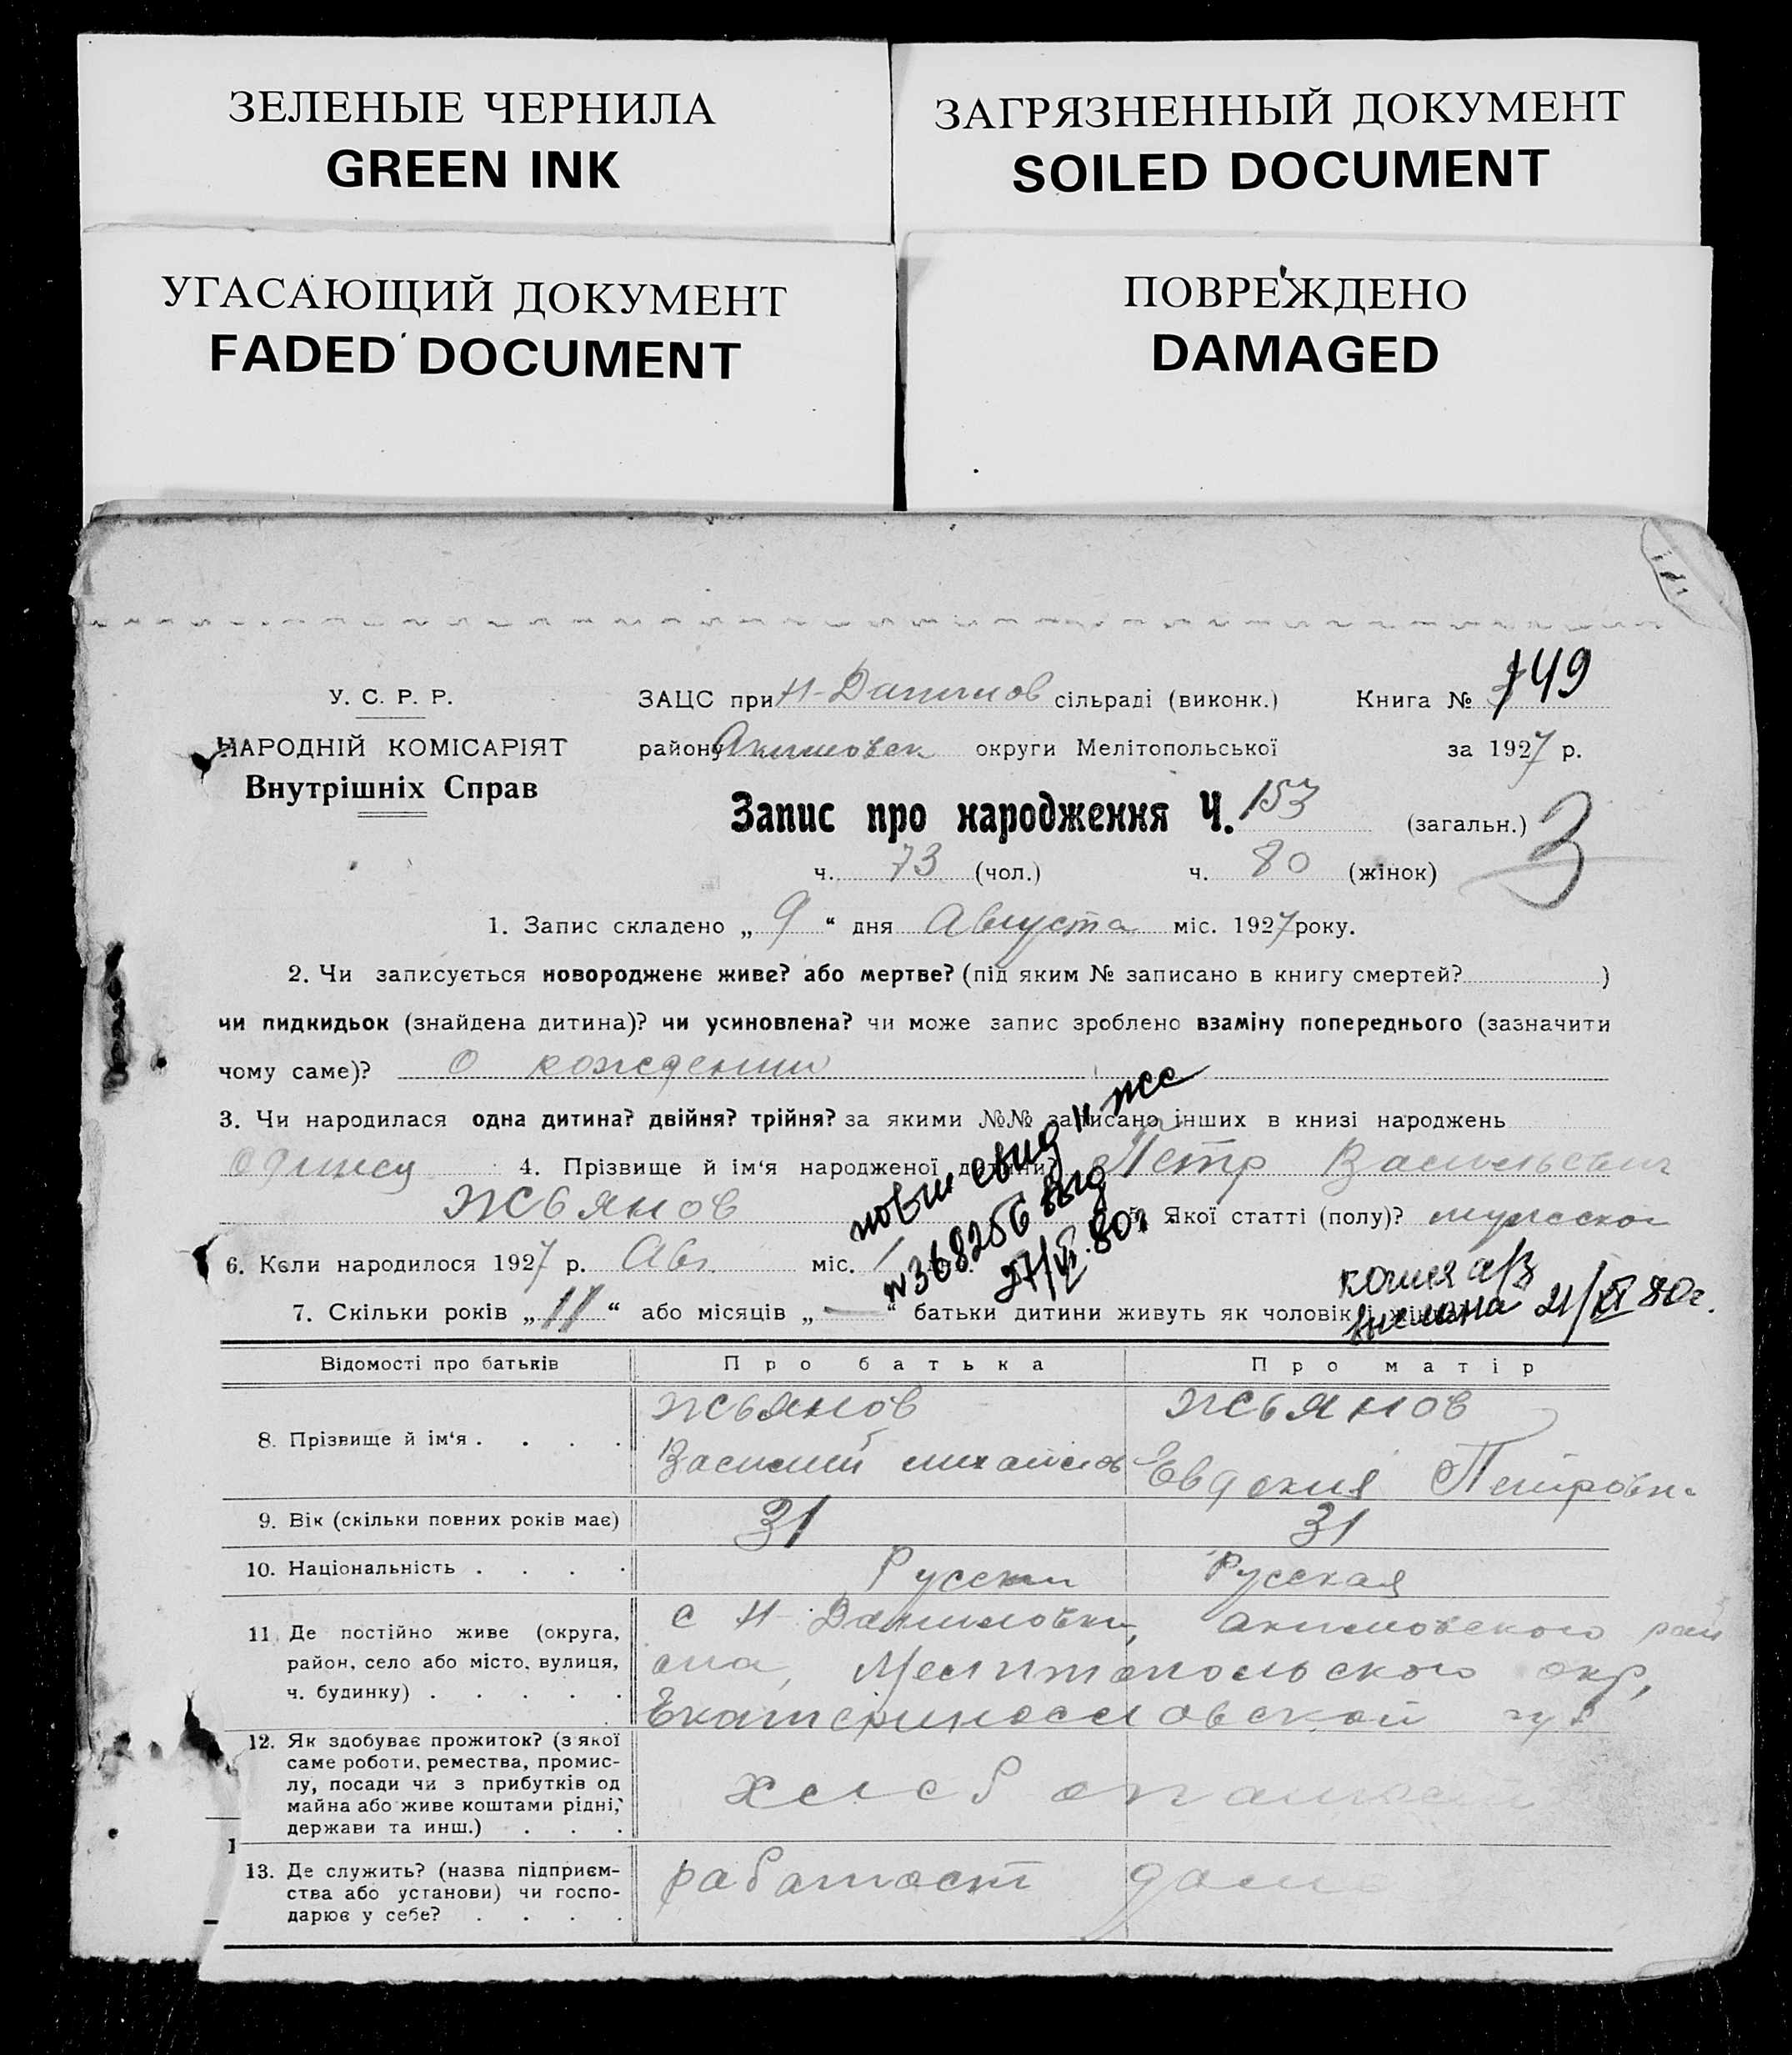 ЗЕЛЕНЫЕ ЧЕРНИЛА
GREEN INK
ЗАГРЯЗНЕННЫЙ ДОКУМЕНТ
SOILED DOCUMENT
УГАСАЮЩИЙ ДОКУМЕНТ
FADED DOCUMENT
ПОВРЕЖДЕНО
DAMAGED
У. С. Р. Р.
НАРОДНІЙ КОМІСАРІЯТ
Внутрішніх Справ
ЗАЦС при Н-Данилов сільраді (виконк.)
Книга № 149
району Акимовск округи Мелітопольської
за 1927 р.
Запис про народження Ч. 153 (загальн.)
3
ч. 73 (чол.) ч. 80 (жінок)
1. Запис складено „ 9 “ дня Августа міс. 1927 року.
2. Чи записується новороджене живе? або мертве? (під яким № записано в книгу смертей? )
чи пидкидьок (знайдена дитина)? чи усиновлена? чи може запис зроблено взаміну попереднього (зазначити
чому саме)? О рождении
3. Чи народилася одна дитина? двійня? трійня? за якими №№ записано інших в книзі народжень
4. Прізвище й ім‘я народженої дитини? Петр Васильевич
Жьянов Якої статті (полу)? мужской
6. Коли народилося 1927 р. Авг. міс. 1
№368256 выд
27/VI.80г
7. Скільки років „ 11 “ або місяців „ — “ батьки дитини живуть як чоловік і
копия а/з
выслана 21/XI 80г.
Відомості про батьків Про батька Про матір
8. Прізвище й ім‘я . . . .
Жьянов
Василий михайлов
Жьянов
Евдокия Петровн
9. Вік (скільки повних років має) 31 31
10. Національність . . . . Русский Русская
11. Де постійно живе (округа,
район, село або місто, вулиця,
ч. будинку) . . . . .
с Н-Даниловки, Акимовского рай
она, Мелитопольского окр,
Екатеринославской губ
12. Як здобуває прожиток? (з якої
саме роботи, ремества, промис-
лу, посади чи з прибутків од
майна або живе коштами рідні,
держави та инш.) . . .
хлебопашест
13. Де служить? (назва підприєм-
ства або установи) чи госпо-
дарює у себе? . . . .
работает дома